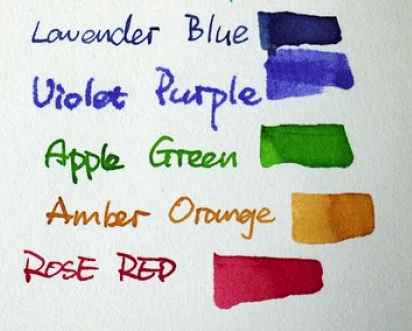 Lavender Blue
Violet Purple
Apple Green
Amber Orange
ROSE RED